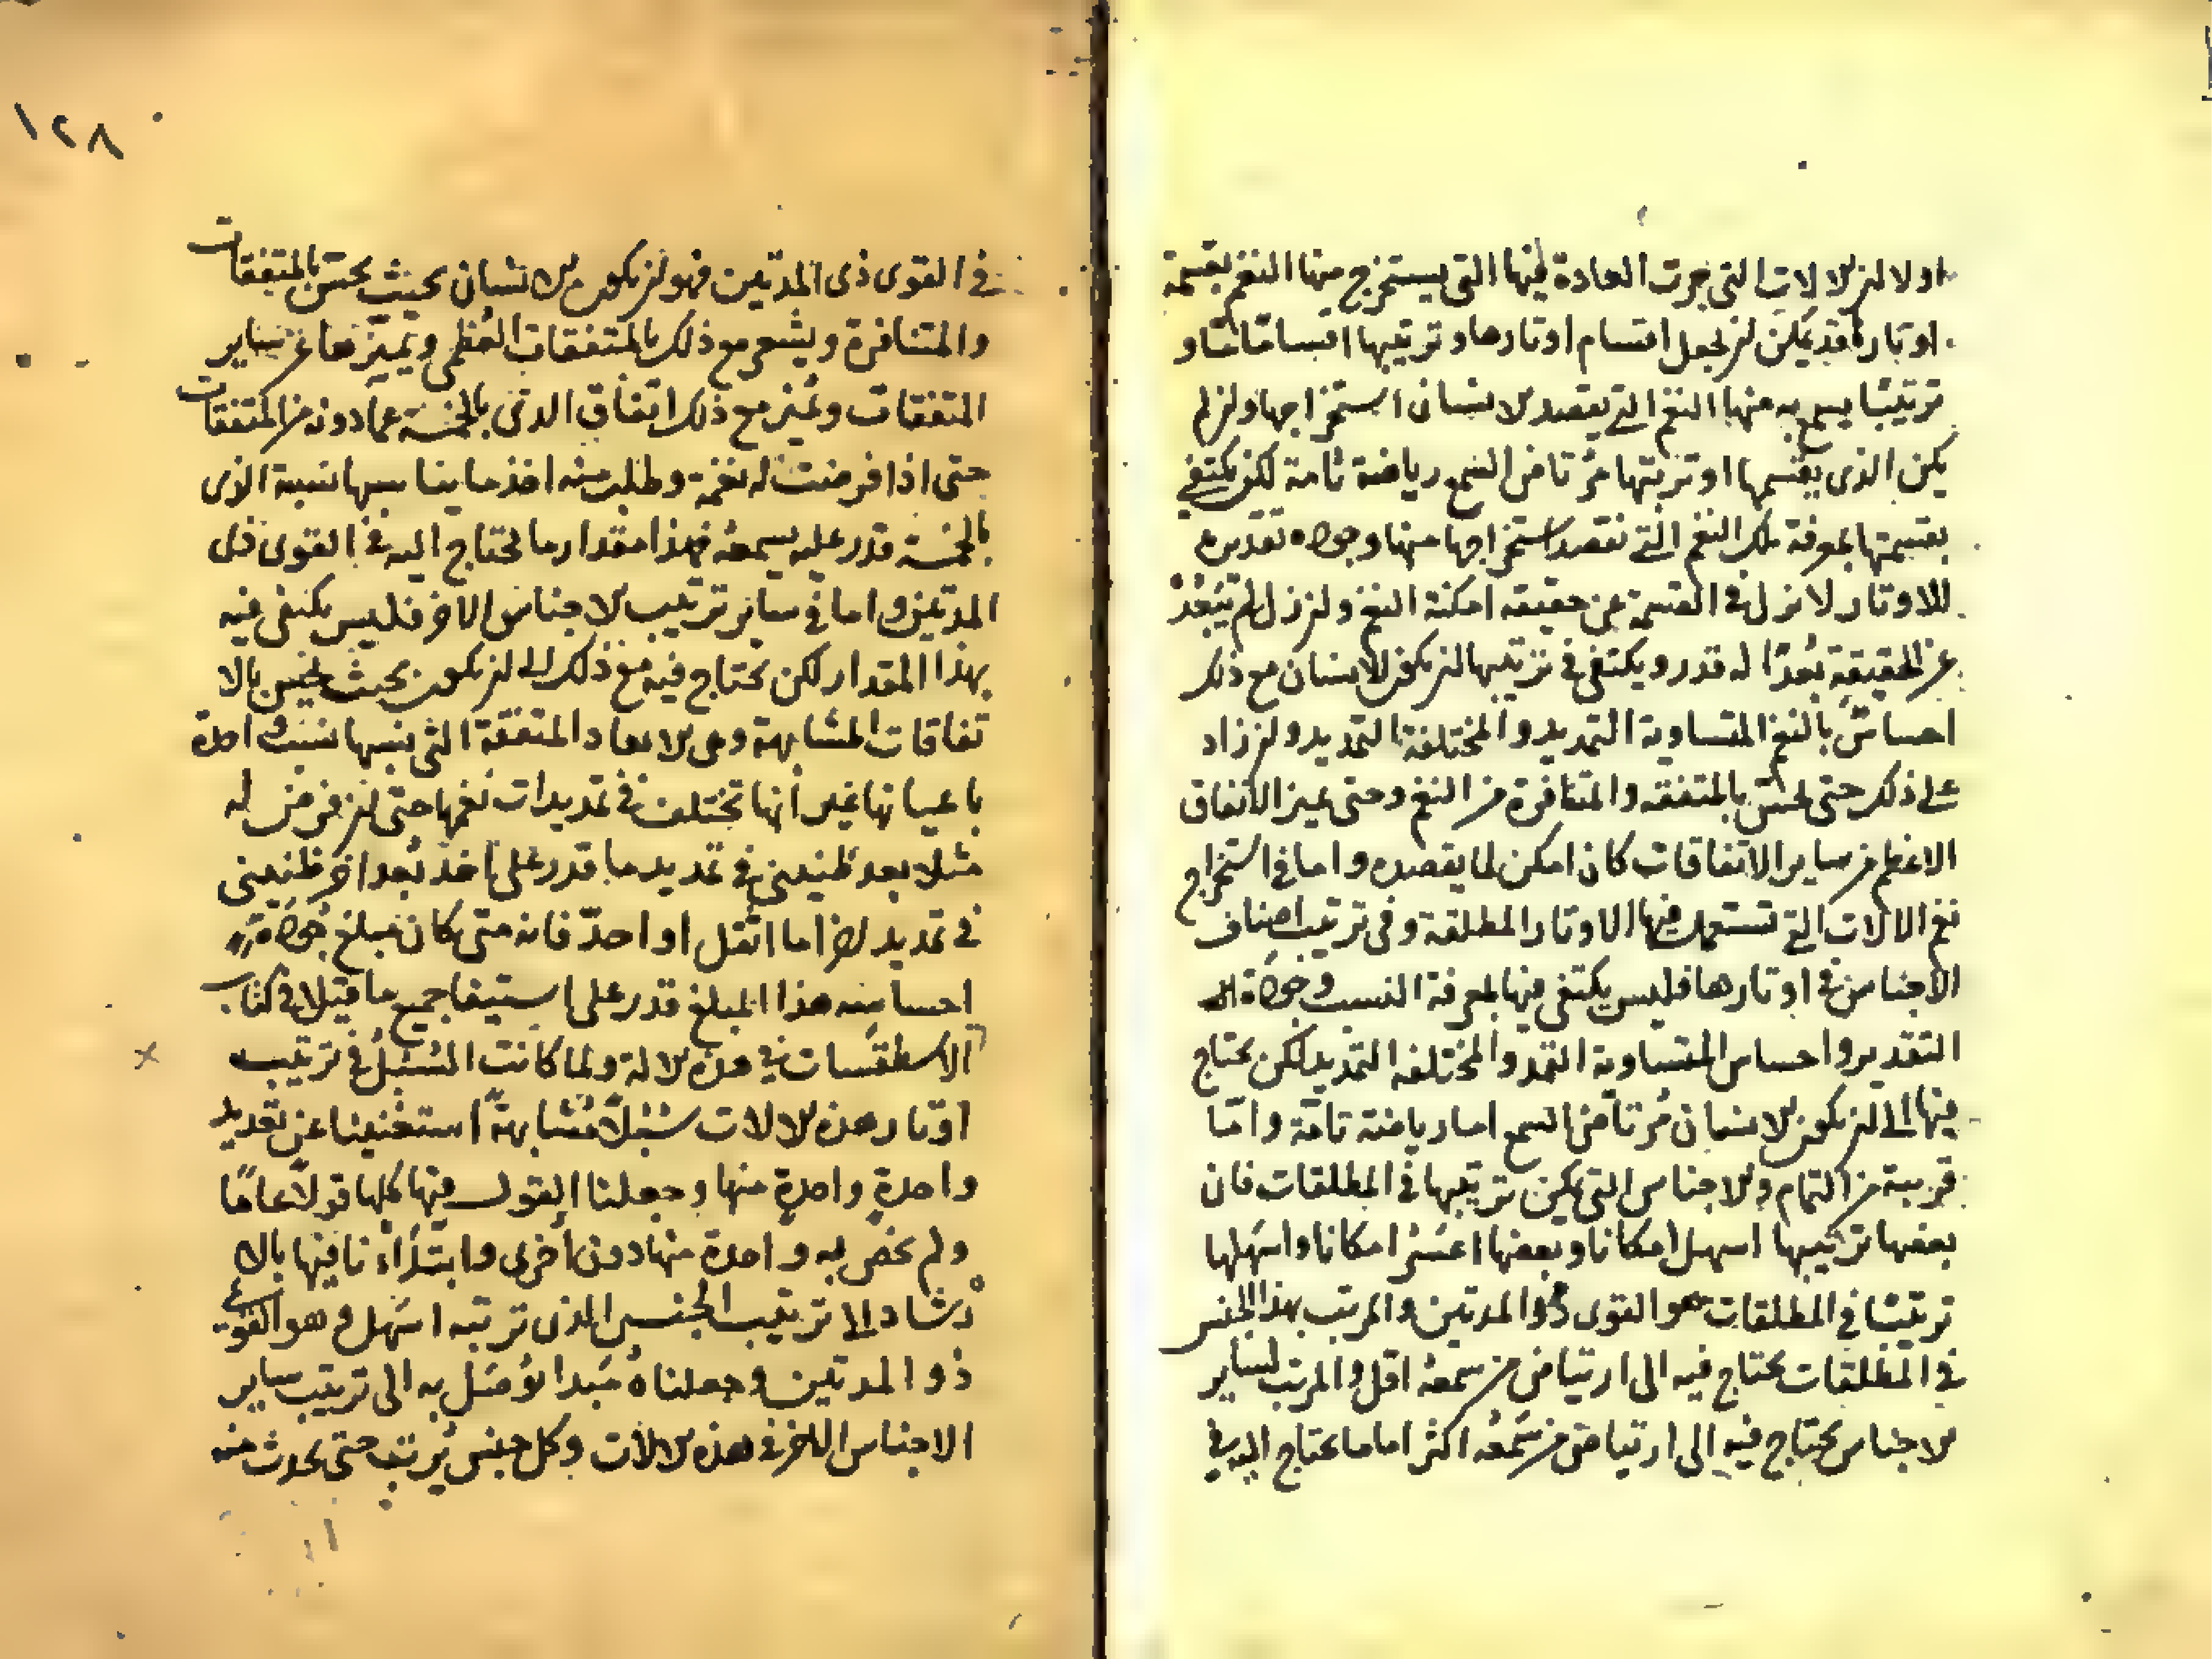 اولا ان الالات التى جرت العادة فيها التى يستخرج منها النغم بقسمة
اوتارها قد يمكن ان يجعل اقسام اوتارها وترتيبها اقساما ما او
ترتيبا يسمع به منها النغم التى يقصد الانسان استخراجها وان لم
يكن الذى يقسمها او ترتبها مرتاض السمع رياضة تامة لكن يكتفى
بقسمتها بمعرفة تلك النغم التى نقصد استخراجها منها وجودة تقديره
للاوتار لا نزل فى القسمة عن حقيقة امكنة النغم وان زل لم يبعد
عن الحقيقة بعدا له قدر ويكتفى فى ترتيبها ان يكون للانسان مع ذلك
احساس بالنغم المتساوية التمديد والمختلفة التمديد وان زاد
على ذلك حتى يحس بالمتفقة والمتنافرة من النغم وحتى يميز الاتفاق
الاعظم من ساير الاتفاقات كان امكن لما يقصده واما فى استخراج
نغم الالات التى تستعمل فيها الاوتار المطلقة وفى ترتيب اصناف
الاجناس فى اوتارها فليس يكتفى فيها بمعرفة النسب وجودة
التقدير واحساس المتساوية التمدد والمختلفة التمديد لكن يحتاج
فيها الى ان يكون الانسان مرتاض السمع اما رياضة تامة واما
قريبة من التمام والاجناس التى يمكن ترتيبها فى المطلقات فان
بعضها ترتيبها اسهل امكانا وبعضها اعسر امكانا واسهلها
ترتيبا فى المطلقات هو القوى ذو المدتين والمرتب بهذا الجنس
فى المطلقات يحتاج فيه الى ارتياض من سمعه اقل والمرتب لساير
الاجناس يحتاج فيه الى ارتياض من سمعه اكثر اما ما يحتاج اليه فى
١٢٨
فى القوى ذى المدتين فهو ان يكون الانسان بحيث يحس بالمتفقات
والمتنافرة ويشعر مع ذلك بالمتفقات العظمى ويميزها عن ساير
المتفقات ويميز مع ذلك اتفاق الذى بالخمسة عما دونه من المتفقات
حتى اذا فرضت له نغمة وطلب منه اخذ ما يناسبها نسبة الذى
بالخمسة قدر عليه بسمعه فهذا مقدار ما يحتاج اليه فى القوى ذى
المدتين واما فى ساير ترتيب الاجناس الاخر فليس يكتفى فيه
بهذا المقدار لكن يحتاج فيه مع ذلك الى ان يكون بحيث يحس بالا
تفاقات المشابهة وهى الابعاد المتفقة التى نسبها نسب واحدة
باعيانها غير انها تختلف فى تمديدات نغمها حتى ان فرض له
مثلا بعد طنينى فى تمديد ما قدر على اخذ بعد اخر طنينى
فى تمديد اخر اما اثقل او احد فانه متى كان مبلغ جودة
احسا منه هذا المبلغ قدر على استيفا جميع ما قيل فى كتاب
الاسطقسات فى هذه الالة ولما كانت السبل فى ترتيب
اوتار هذه الالات سبلا متشابهة استغنينا عن تعديد
واحدة واحدة منها وجعلنا القول فيها كلها قولا عاما
ولم نخص به واحدة منها دون اخرى وابتداءنا فيها بالا
رشاد الى ترتيب الجنس الذى ترتيبه اسهل وهو القوى
ذو المدتين وجعلناه مبدا نؤصل به الى ترتيب ساير
الاجناس الاخر فى هذه الالات وكل جنس يرتب حتى يحدث منه